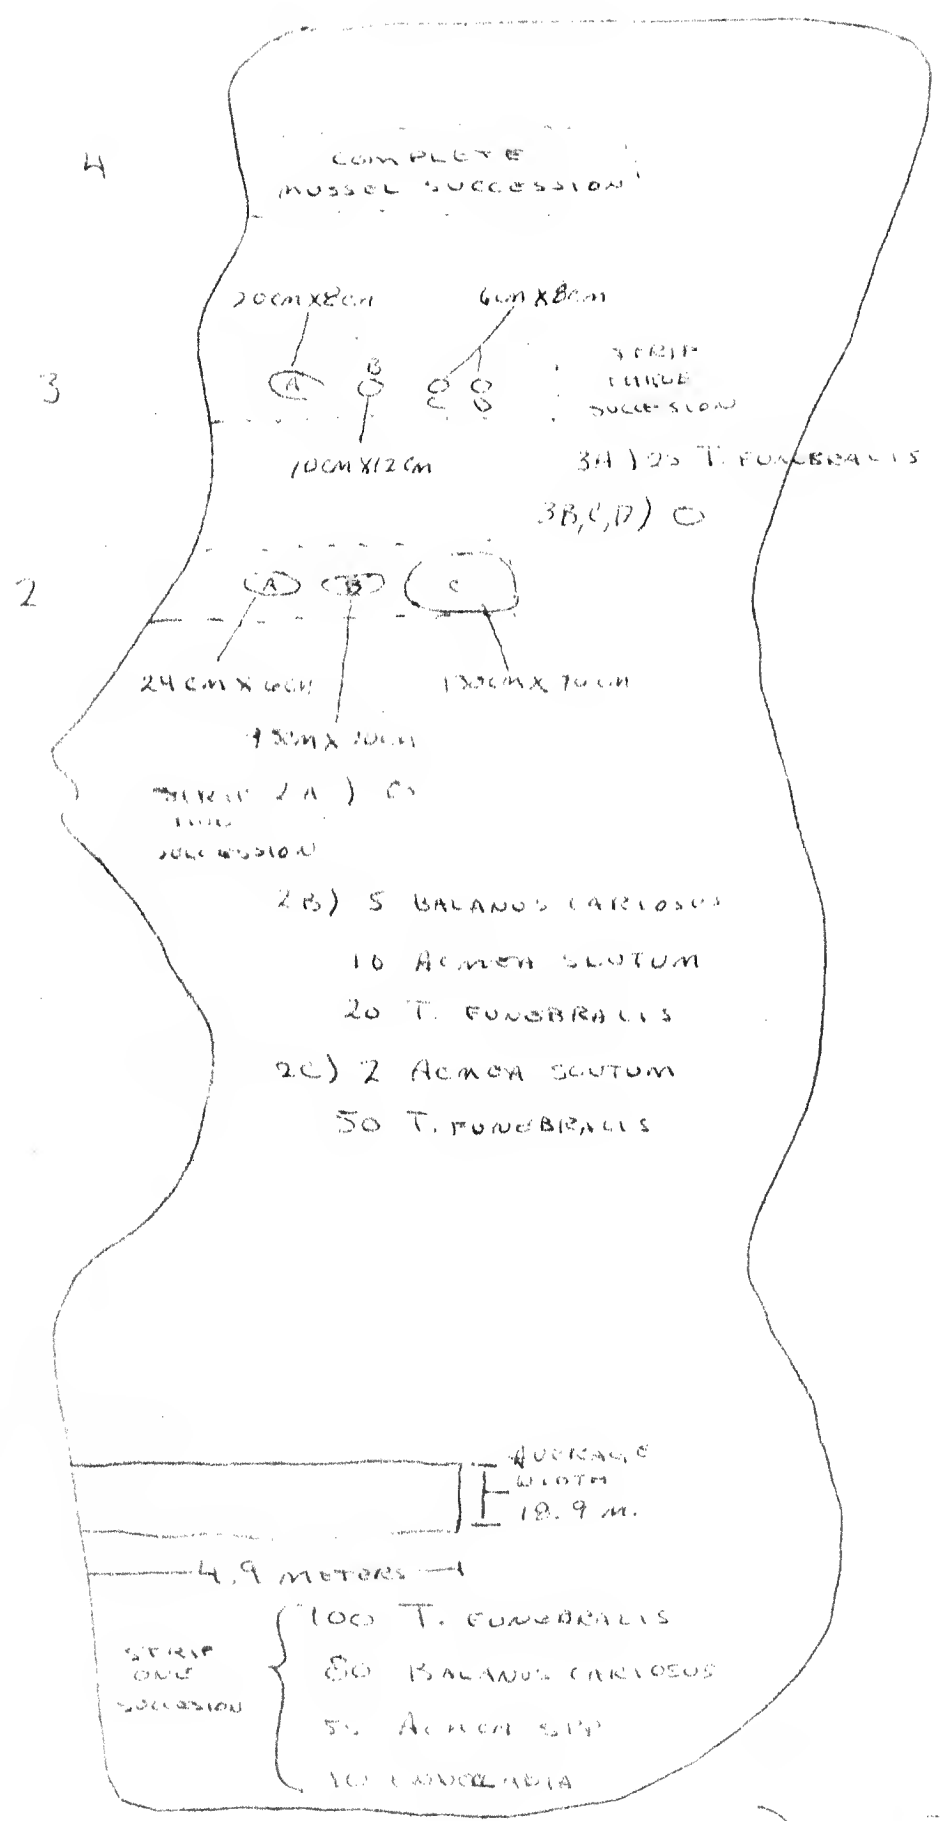 4
COMPLETE
MUSSEL SUCCESSION
20cm X 8cm
6cm X 8cm
3
A
B
C
D
STRIP
THREE
SUCCESSION
10cm X 12cm
3A) 25 T. FUNEBRALIS
3B,C,D) 0
2
A
B
C
24cm X 6cm
STRIP 2A)
TWO
SUCCESSION
2B) 5 BALANUS CARIOSUS
10 ACMEA SCUTUM
20 T. FUNEBRALIS
2C) 2 ACMEA SCUTUM
50 T. FUNEBRALIS
AVERAGE
WIDTH
18.9 M.
4.9 METERS
100 T. FUNEBRALIS
STRIP
ONE
SUCCESION
80 BALANUS CARIOSUS
50 ACMEA SPP
10